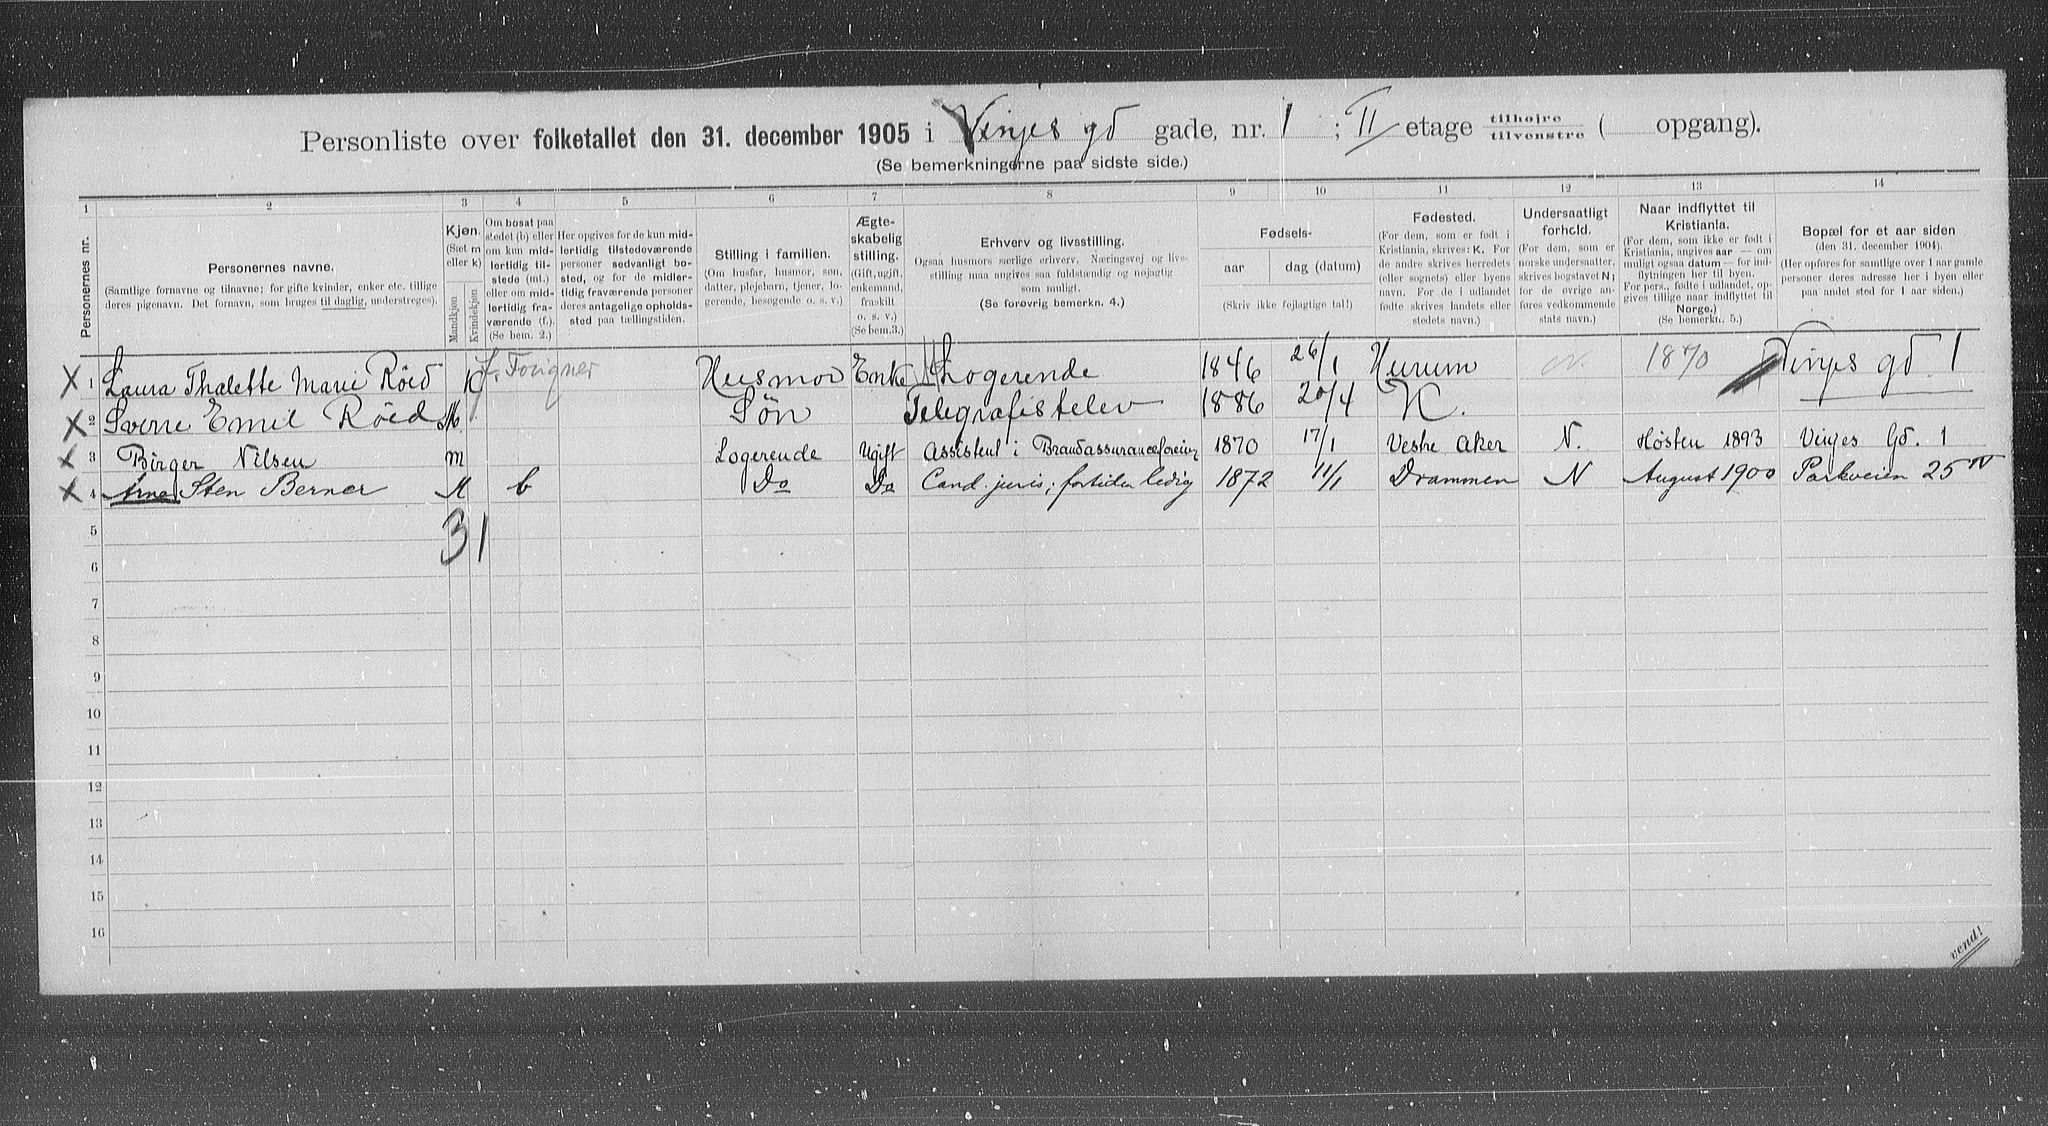 Personliste over folketallet den 31. december 1905 i Vinjes gd gade, nr. 1 ; II etage tilhøire/tilvenstre ( opgang).
(Se bemerkningerne paa sidste side.)
1 2 3 4 5 6 7 8 9 10 11 12 13 14
Personernes nr.
Personernes navne.
(Samtlige fornavne og tilnavne; for gifte kvinder, enker etc. tillige
deres pigenavn. Det fornavn, som bruges til daglig, understreges).
Kjøn.
(Sæt m
eller k)
Mandkjøn
Kvindekjøn
Om bosat paa
stedet (b) eller
om kun mid-
lertidig til-
stede (mt.)
eller om mid-
lertidig fra-
værende (f.).
(Se bem. 2.)
Her opgives for de kun mid-
lertidig tilstedeværende
personer sedvanligt bo-
sted, og for de midler-
tidig fraværende personer
deres antagelige opholds-
sted paa tællingstiden.
Stilling i familien.
(Om husfar, husmor, søn,
datter, plejebarn, tjener, lo-
gerende, besøgende o. s. v.)
Ægte-
skabelig
stilling.
(Gift, ugift,
enkemand,
fraskilt
o. s. v.)
(Se bem. 3.)
Erhverv og livsstilling.
Ogsaa husmors særlige erhverv. Næringsvej og livs-
stilling maa angives saa fuldstændig og nøjagtig
som muligt.
(Se forøvrig bemerkn. 4.)
Fødsels-
aar dag (datum)
(Skriv ikke fejlagtige tal!)
Fødested.
(For dem, som er født i
Kristiania, skrives: K. For
de andre skrives herredets
(eller sognets) eller byens
navn. For de i udlandet
fødte skrives landets eller
stedets navn.)
Undersaatligt
forhold.
(For dem, som er
norske undersaatter,
skrives bogstavet N;
for de øvrige an-
føres vedkommende
stats navn.)
Naar indflyttet til
Kristiania.
(For dem, som ikke er født i
Kristiania, angives aar — om
muligt ogsaa datum — for ind-
flytningen her til byen.
For pers., fødte i udlandet, op-
gives tillige naar indflyttet til
Norge.)
(Se bemerkn. 5.)
Bopæl for et aar siden
(den 31. december 1904).
(Her opføres for samtlige over 1 aar gamle
personer deres adresse her i byen eller
paa andet sted for 1 aar siden.)
X 1 Laura Thalette Marie Röed K f. Husmor Enke Logerende 1846 26/1 Hurum N. 1870 Vinjes gd. 1
X 2 Sverre Emil Röed M. Søn Telegrafistelev 1886 20/4 K.
X 3 Birger Nilsen m Logerende Ugift Assistent i Brandassuranceforening 1870 17/1 Vestre Aker N. Høsten 1893 Vinjes Gd. 1
X 4 Arne Sten Berner M b Do Do Cand. juris; fortiden ledig 1872 11/1 Drammen N August 1900 Parkveien 25 IV
5 3 1
6
7
8
9
10
11
12
13
14
15
16
vend!